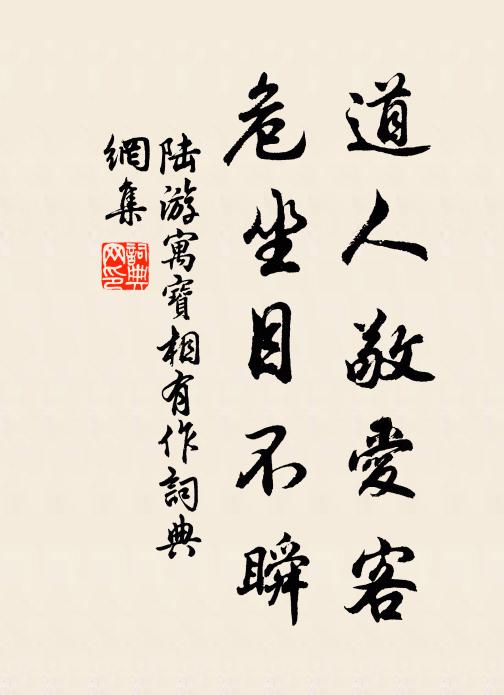 道人敬愛客
危坐目不瞬
陆游寓寶相有作詞典
網集
詞典
网印